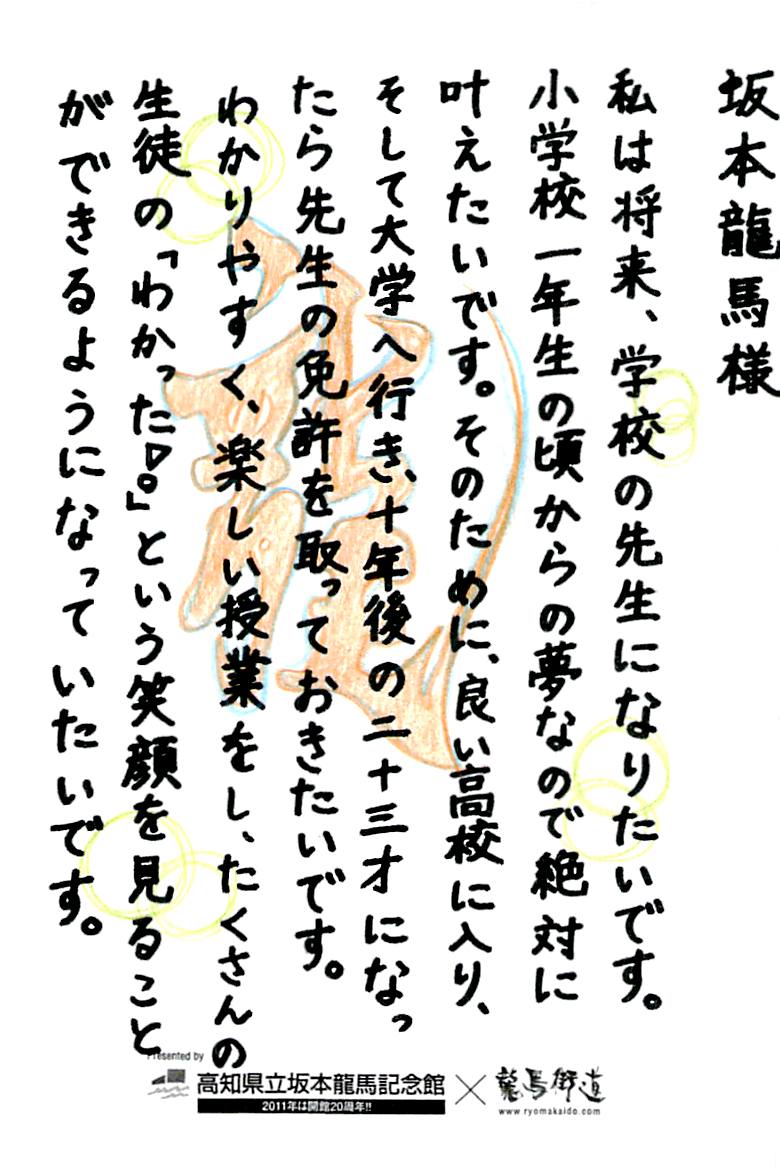 坂本龍馬様
私は将来、学校の先生になりたいです。
小学校一年生の頃からの夢なので絶対に
叶えたいです。そのために、良い高校に入り、
そして大学へ行き、十年後の二十三才になっ
たら先生の免許を取っておきたいです。
わかりやすく、楽しい授業をし、たくさんの
生徒の「わかった♡。」という笑顔を見ること
ができるようになっていたいです。
龍
Presented by
高知県立坂本龍馬記念館×龍馬街道
2011年は開館20周年!!
www.ryomakaido.com